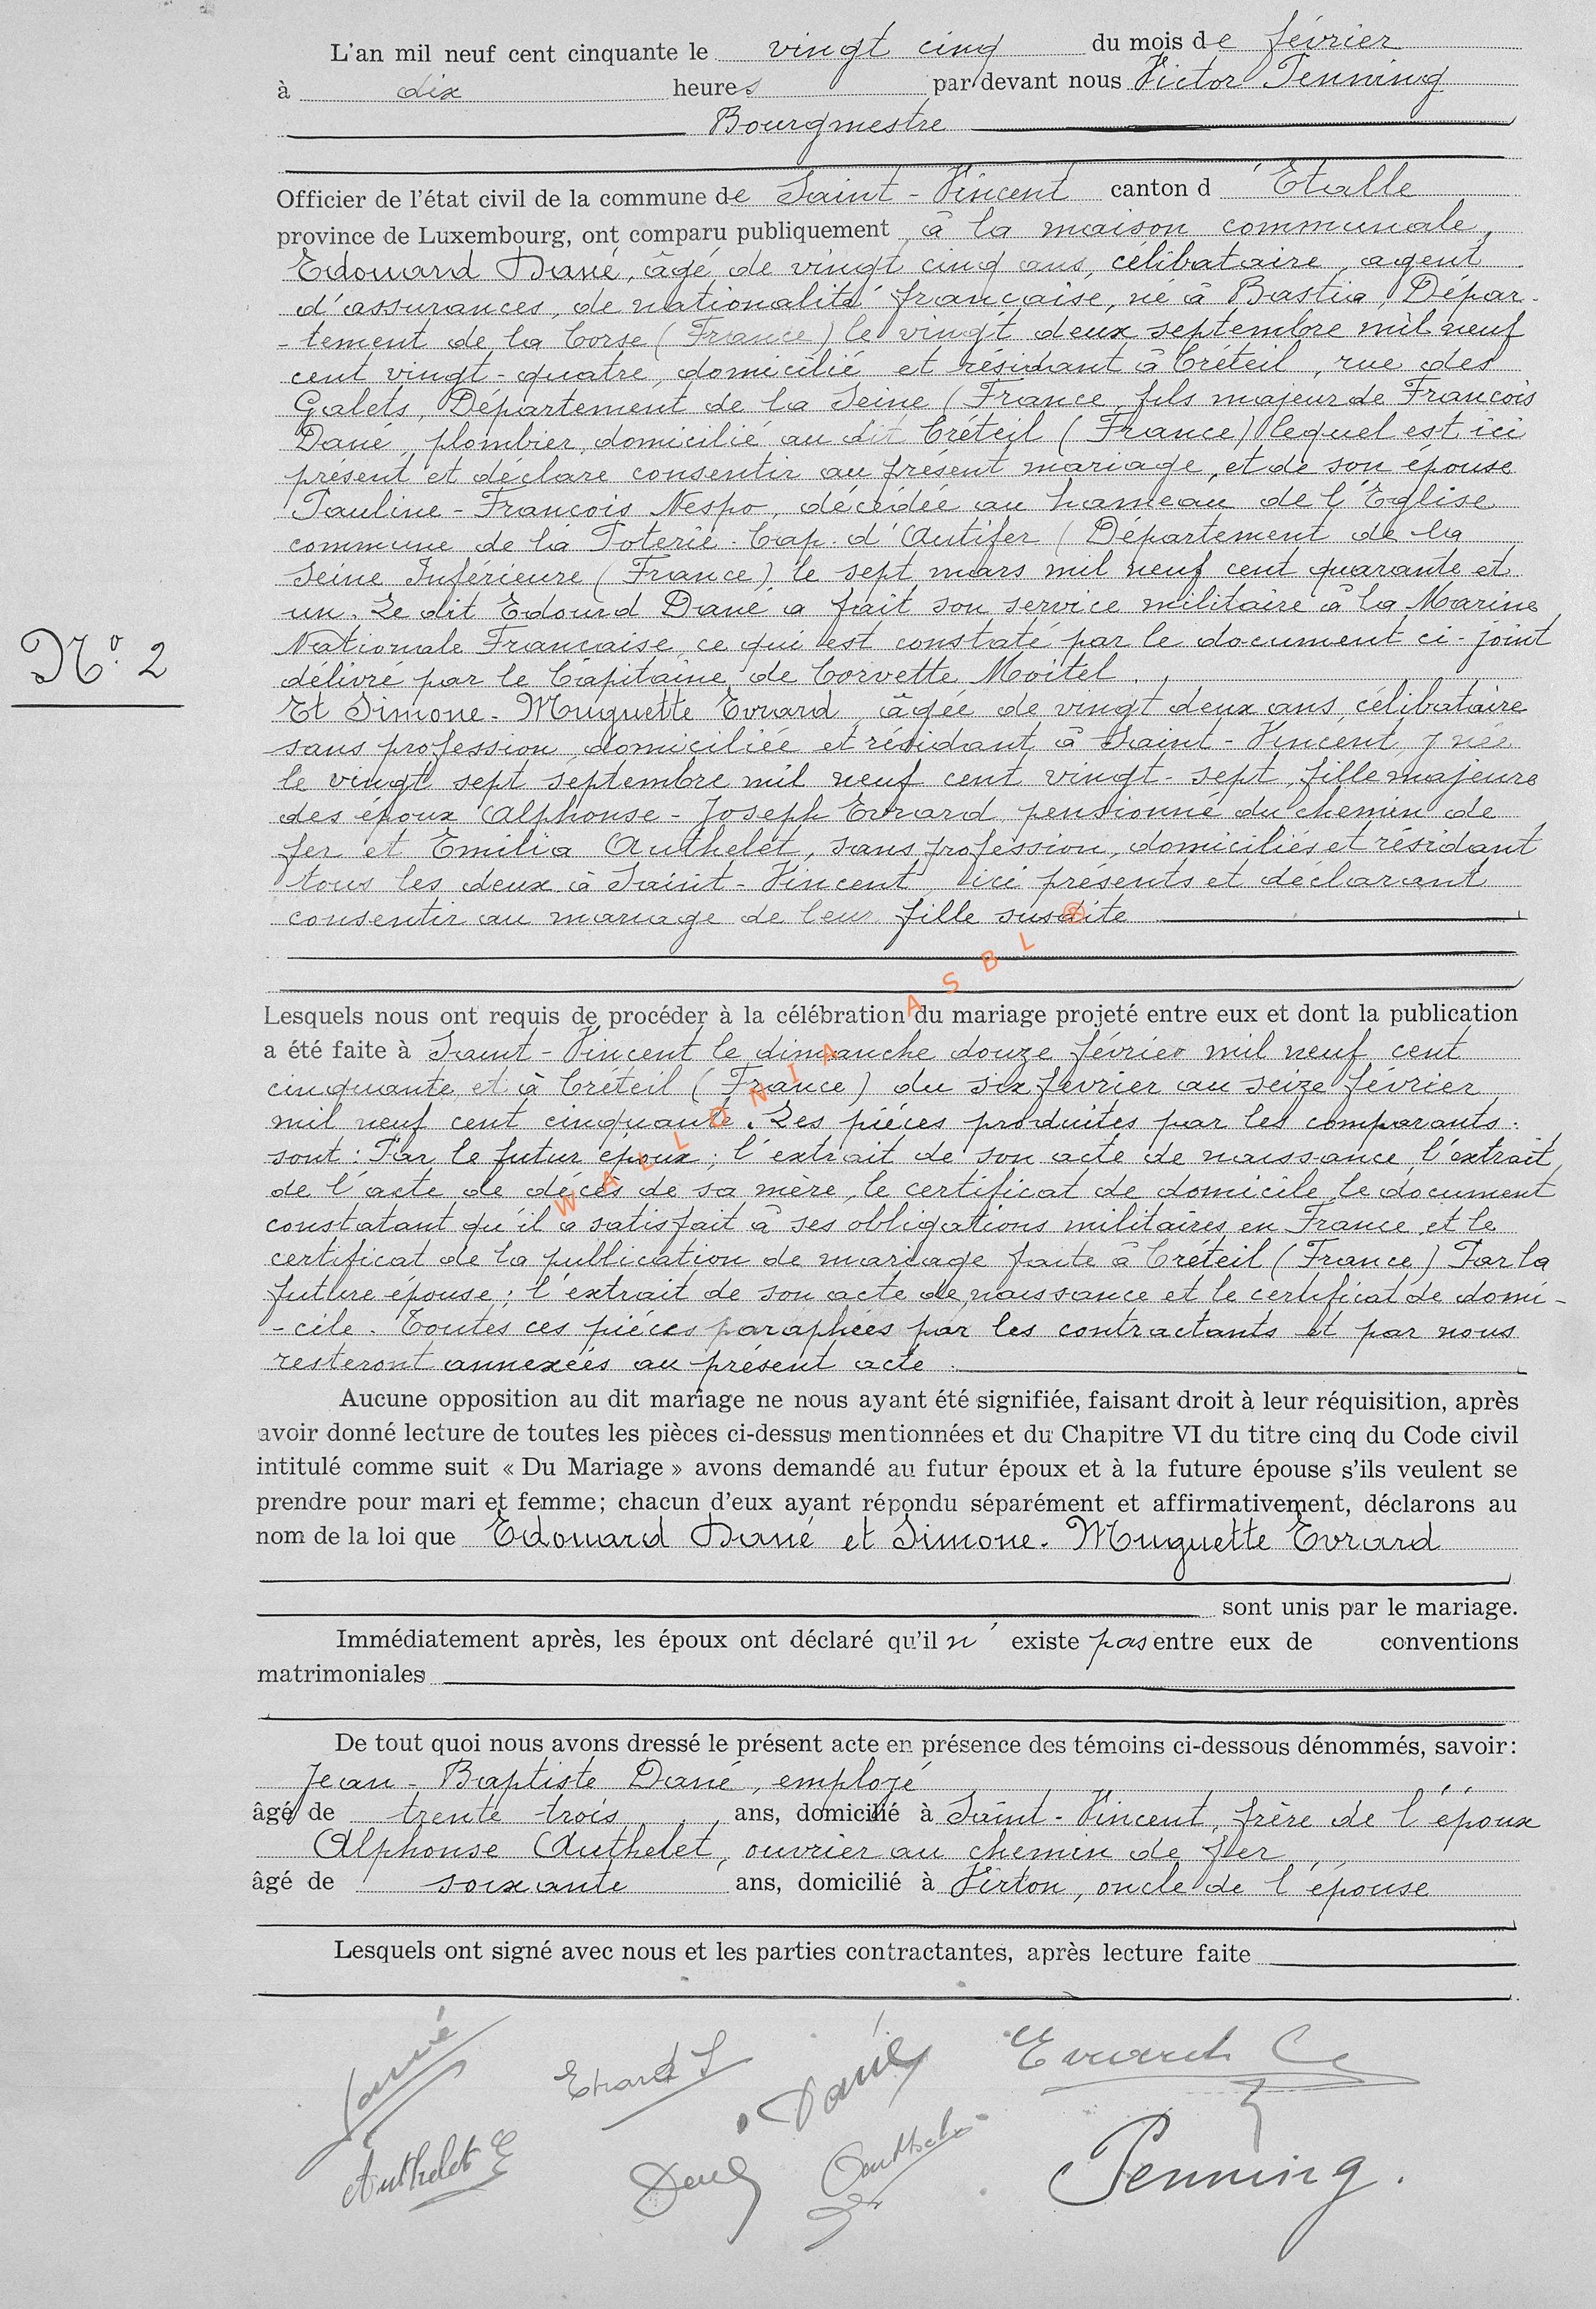 L'an mil neuf cent cinquante le vingt cinq du mois de février
à dix heures par devant nous Victor Penning
Bourgmestre
Officier de l'état civil de la commune de Saint-Vincent canton d'Etalle
province de Luxembourg, ont comparu publiquement à la maison communale,
Edouard Dané, âgé de vingt cinq ans, célibataire, agent
d'assurances, de nationalité française, né à Bastia, Dépar-
-tement de la Corse (France) le vingt deux septembre mil neuf
cent vingt-quatre, domicilié et résidant à Créteil, rue des
Galets, Département de la Seine (France, fils majeur de François
Dané, plombier, domicilié au dit Créteil (France) lequel est ici
présent et déclare consentir au présent mariage, et de son épouse
Pauline-François Nespo, décédée au hameau de l'Eglise
commune de la Poterie-Cap-d'Antifer (Département de la
Seine Inférieure (France) le sept mars mil neuf cent quarante et
un. Le dit Edourd Dané a fait son service militaire à la Marine
Nationale Française, ce qui est constaté par le document ci-joint
délivré par le Capitaine de Corvette Moitel.
N° 2
Et Simone-Muguette Evrard, âgée de vingt deux ans, célibataire
sans profession, domiciliée et résidant à Saint-Vincent, y née
le vingt sept septembre mil neuf cent vingt-sept, fille majeure
des époux Alphonse-Joseph Evrard pensionné du chemin de
fer et Emilia Authelet, sans profession, domiciliés et résidant
tous les deux à Saint-Vincent, ici présents et déclarant
consentir au mariage de leur fille susdite
Lesquels nous ont requis de procéder à la célébration du mariage projeté entre eux et dont la publication
a été faite à Saint-Vincent le dimanche douze février mil neuf cent
cinquante et à Créteil (France) du six février au seize février
mil neuf cent cinquante. Les pièces produites par les comparants
sont: Par le futur époux; l'extrait de son acte de naissance, l'extrait
de l'acte de décès de sa mère, le certificat de domicile, le document
constatant qu'il a satisfait à ses obligations militaires en France et le
certificat de la publication de mariage faite à Créteil (France) Par la
future épouse; l'extrait de son acte de naissance et le certificat de domi-
-cile. Toutes ces pièces paraphées par les contractants et par nous
resteront annexées au présent acte.
WALLONIA ASBL ®
Aucune opposition au dit mariage ne nous ayant été signifiée, faisant droit à leur réquisition, après
avoir donné lecture de toutes les pièces ci-dessus mentionnées et du Chapitre VI du titre cinq du Code civil
intitulé comme suit « Du Mariage » avons demandé au futur époux et à la future épouse s'ils veulent se
prendre pour mari et femme; chacun d'eux ayant répondu séparément et affirmativement, déclarons au
nom de la loi que Edouard Dané et Simone-Muguette Evrard
sont unis par le mariage.
Immédiatement après, les époux ont déclaré qu'il n'existe pas entre eux de conventions
matrimoniales
De tout quoi nous avons dressé le présent acte en présence des témoins ci-dessous dénommés, savoir:
Jean-Baptiste Dané, employé
âgé de trente trois ans, domicilié à Saint-Vincent, frère de l'époux
Alphonse Authelet, ouvrier au chemin de fer
âgé de soixante ans, domicilié à Virton, oncle de l'épouse
Lesquels ont signé avec nous et les parties contractantes, après lecture faite
Dané Evrard S Dané Evrard
Authelet E Dané Authelet Penning.